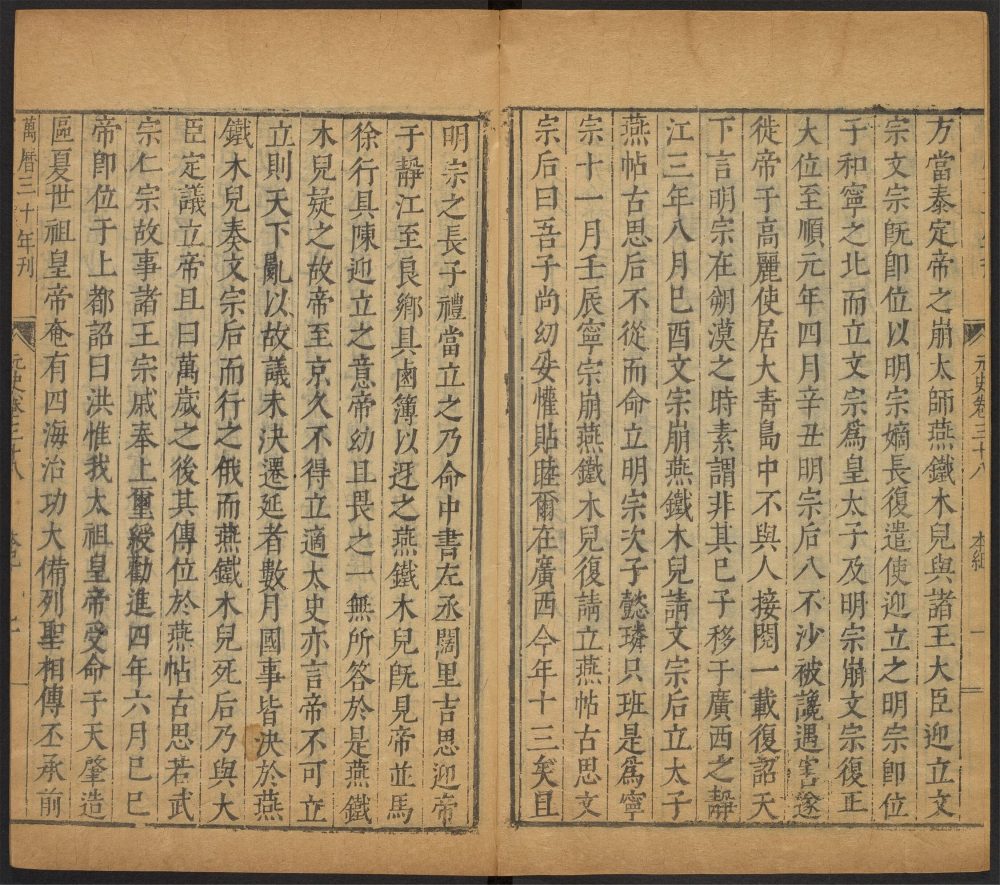 方當泰定帝之崩太師燕鐵木兒與諸王大臣迎立文
宗文宗旣卽位以明宗嫡長復遣使迎立之明宗卽位
于和寧之北而立文宗爲皇太子及明宗崩文宗復正
大位至順元年四月辛丑明宗后八不沙被讒遇害遂
徙帝于高麗使居大青島中不與人接閱一載復詔天
下言明宗在朔漠之時素謂非其巳子移于廣西之靜
江三年八月巳酉文宗崩燕鐵木兒請文宗后立太子
燕帖古思后不從而命立明宗次子懿璘只班是爲寧
宗十一月壬辰寧宗崩燕鐵木兒復請立燕帖古思文
宗后曰吾子尚幼妥懽貼睦爾在廣西今年十三矣且
元史卷三十八 本紀 一
明宗之長子禮當立之乃命中書左丞闊里吉思迎帝
于靜江至良鄉具鹵簿以迓之燕鐵木兒旣見帝並馬
徐行具陳迎立之意帝幼且畏之一無所答於是燕鐵
木兒疑之故帝至京久不得立適太史亦言帝不可立
立則天下亂以故議未決遷延者數月國事皆決於燕
鐵木兒奏文宗后而行之俄而燕鐵木兒死后乃與大
臣定議立帝且曰萬歲之後其傳位於燕帖古思若武
宗仁宗故事諸王宗戚奉上璽綬勸進四年六月巳巳
帝卽位于上都詔曰洪惟我太祖皇帝受命于天肇造
區夏世祖皇帝奄有四海治功大備列聖相傳丕承前
萬曆三十年刊
元史卷三十八